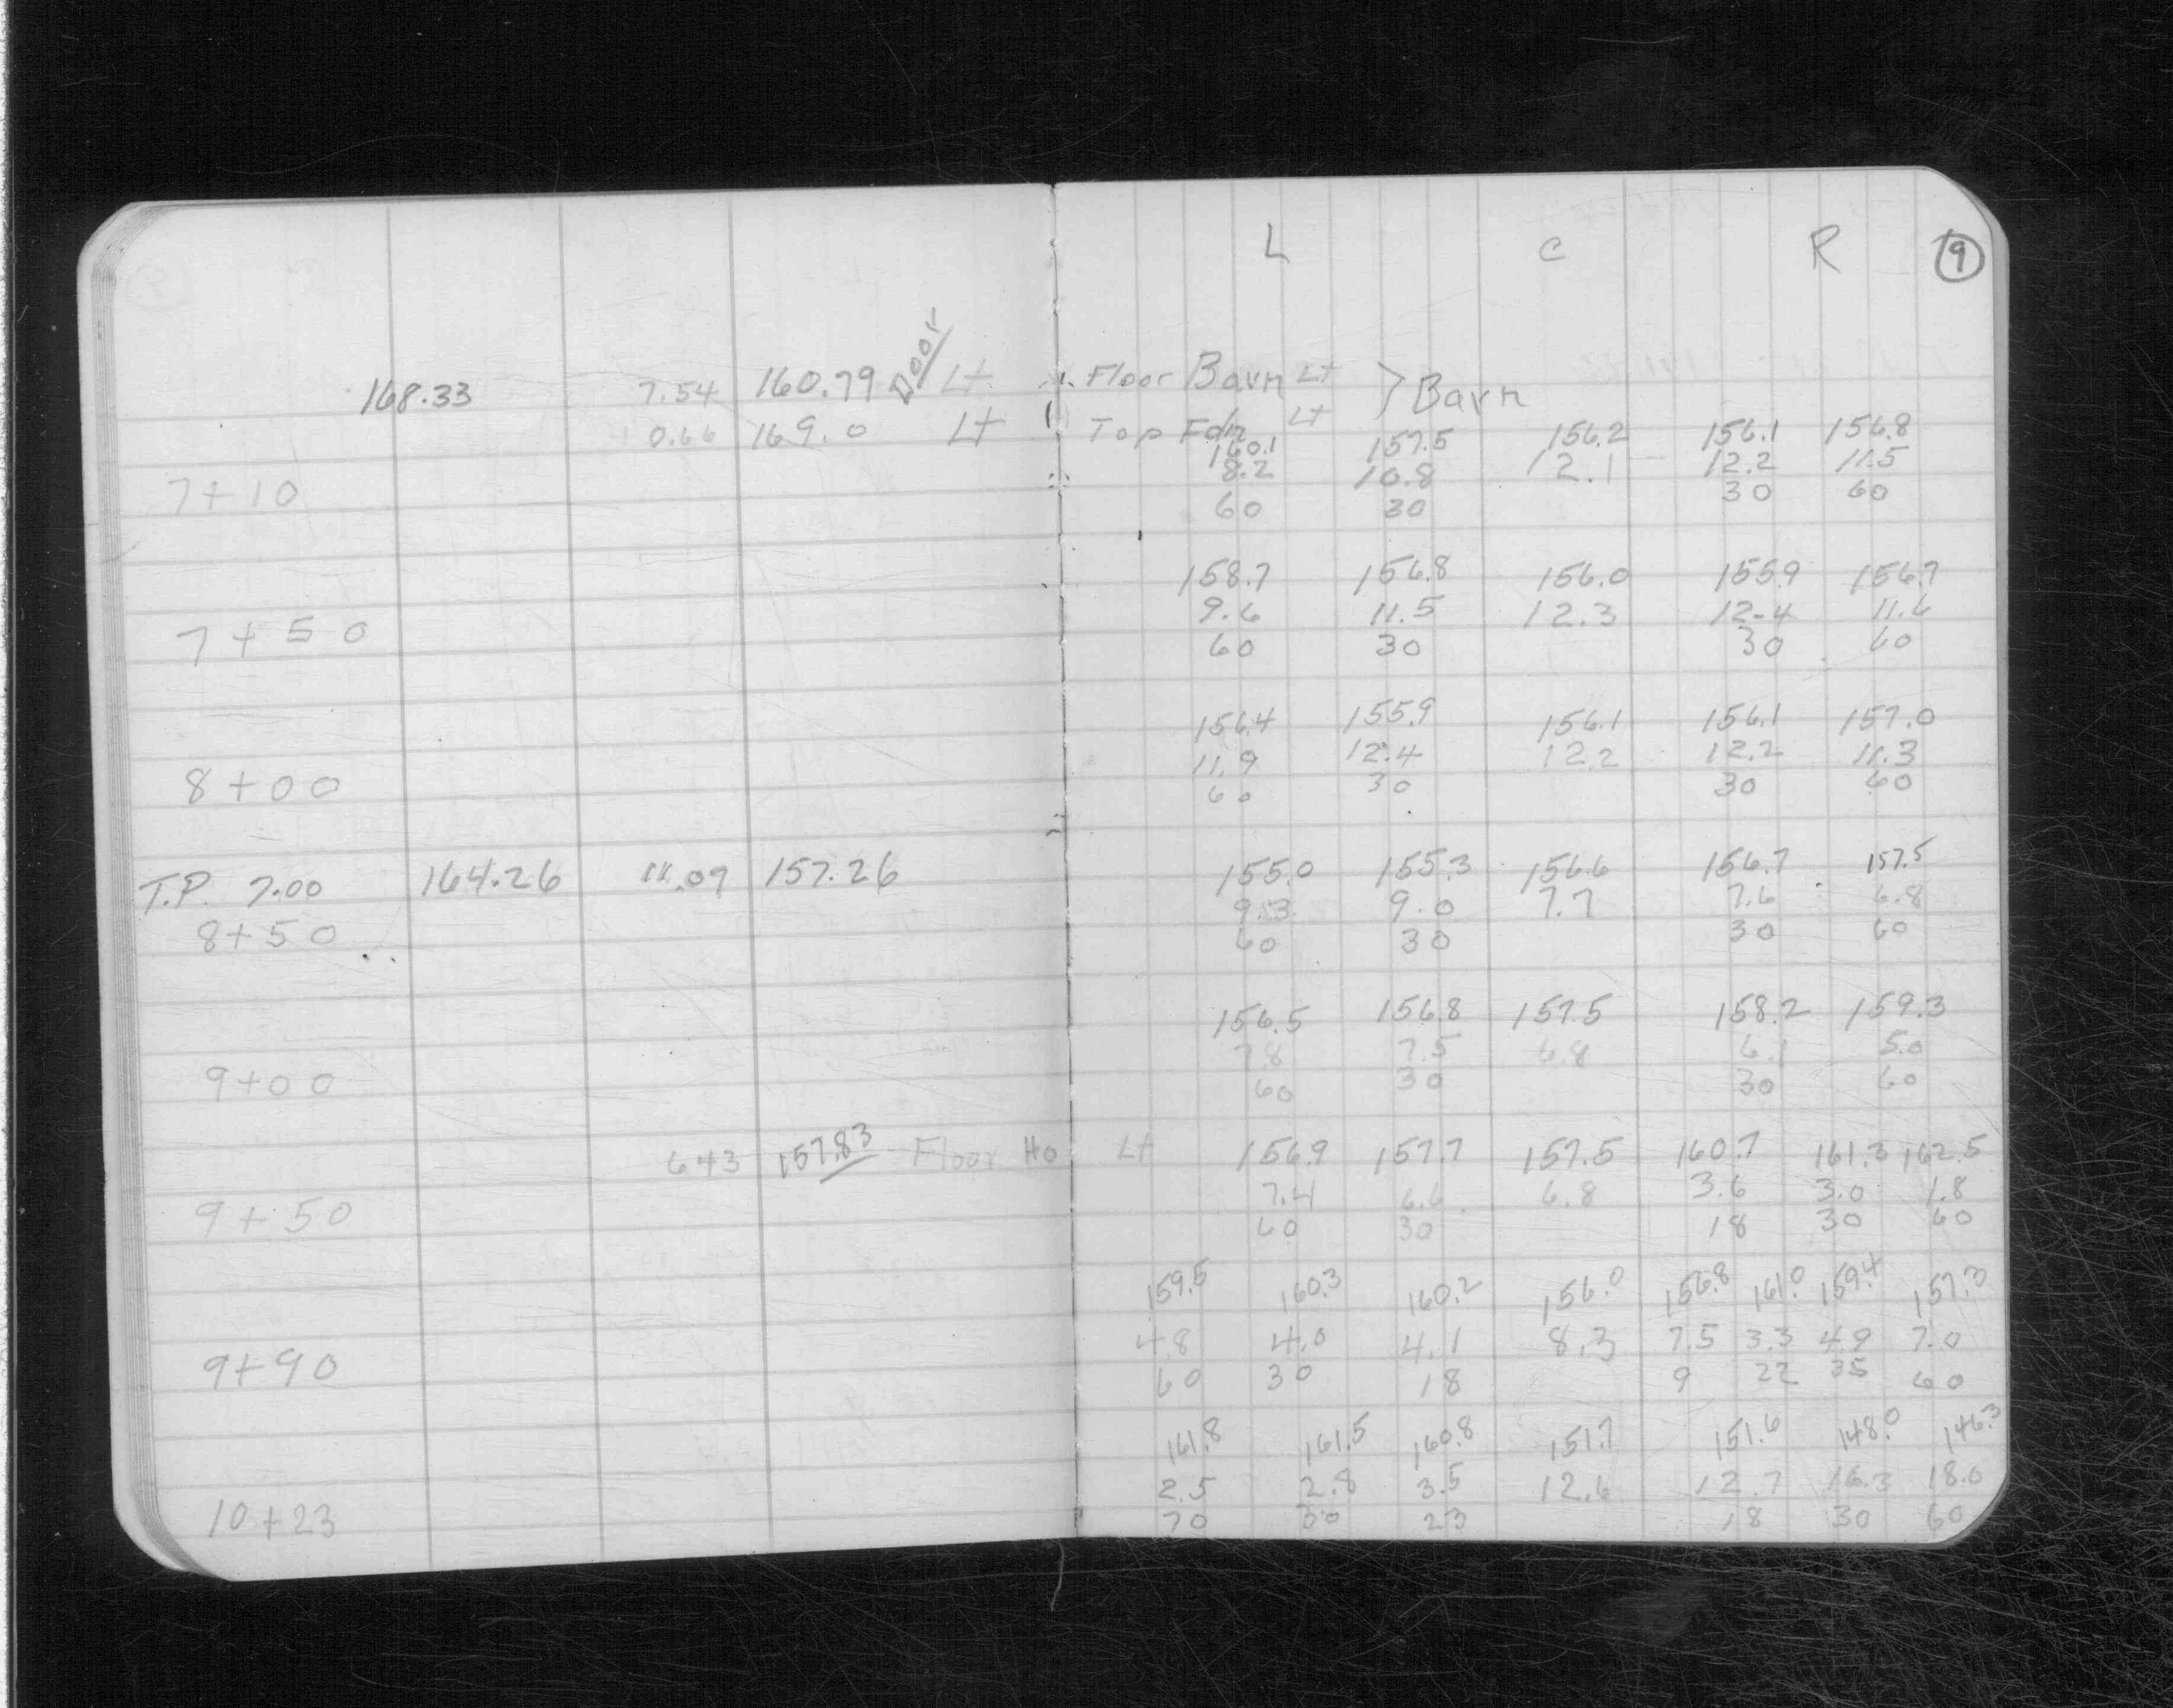 L C R 9
168.33 7.54 160.79 Door Lt Floor Barn Lt } Barn
+0.66 169.0 Lt Top Fdn Lt
160.1 157.5 156.2 156.1 156.8
8.2 10.8 12.1 12.2 11.5
7+10 60 30 30 60
158.7 156.8 156.0 155.9 156.7
9.6 11.5 12.3 12.4 11.6
7+50 60 30 30 60
156.4 155.9 156.1 156.1 157.0
11.9 12.4 12.2 12.2 11.3
8+00 60 30 30 60
T.P. 7.00 164.26 11.07 157.26 155.0 155.3 156.6 156.7 157.5
9.3 9.0 7.7 7.6 6.8
8+50 60 30 30 60
156.5 156.8 157.5 158.2 159.3
7.8 7.5 6.8 6.1 5.0
9+00 60 30 30 60
6.43 157.83 Floor Ho Lt 156.9 157.7 157.5 160.7 161.3 162.5
7.4 6.6 6.8 3.6 3.0 1.8
9+50 60 30 18 30 60
159.5 160.3 160.2 156.0 156.8 161.0 159.4 157.3
4.8 4.0 4.1 8.3 7.5 3.3 4.9 7.0
9+90 60 30 18 9 22 35 60
161.8 161.5 160.8 151.7 151.6 148.0 146.3
2.5 2.8 3.5 12.6 12.7 16.3 18.0
10+23 70 30 23 18 30 60